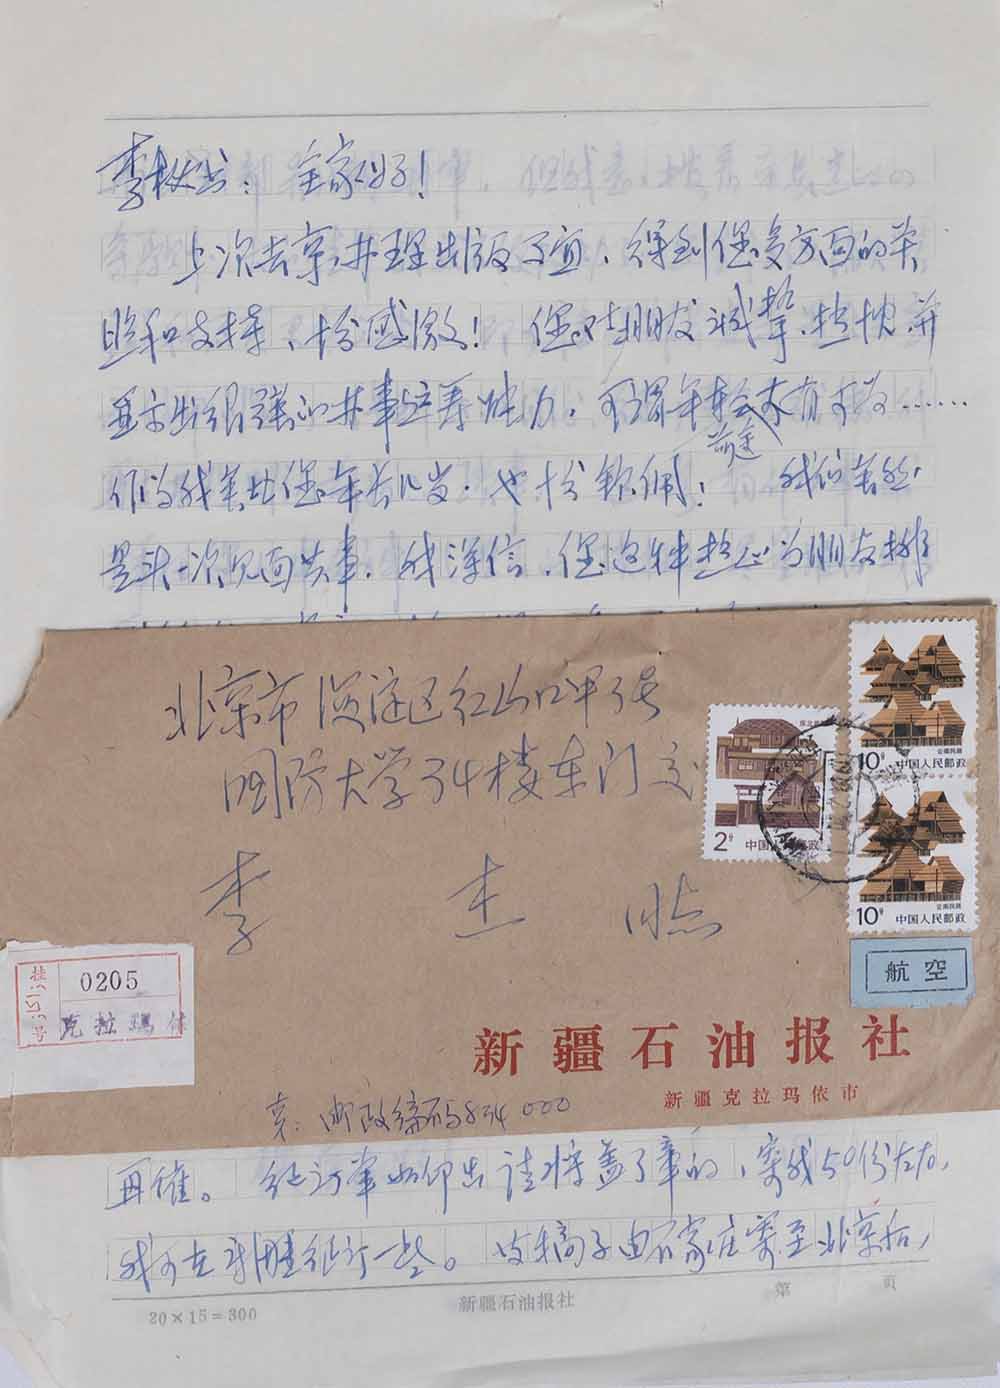 李枚书：全家人好！
上次去京办理出版事宜，得到您多方面的关
照和支持，十分感激！您对朋友诚挚、热忱，并
显示出很强的办事能力，可谓年轻有为……
前途
作为我虽比您年长几岁，也十分钦佩！我们虽然
是头一次见面共事，我深信，您这种热心为朋友排
北京市海淀区红山口甲3号
国防大学34楼东门交
李 杰 收
2分 中国人民邮政
10分 云南民居
中国人民邮政
10分 云南民居
中国人民邮政
航空
挂号
0205
克拉玛依
新疆石油报社
新疆克拉玛依市
邮政编码834000
再催。征订单如印出请将盖了章的，寄我50份左右，
我可在新疆征订一些。皮稿子由石家庄寄至北京后，
20×15=300
新疆石油报社
第 页